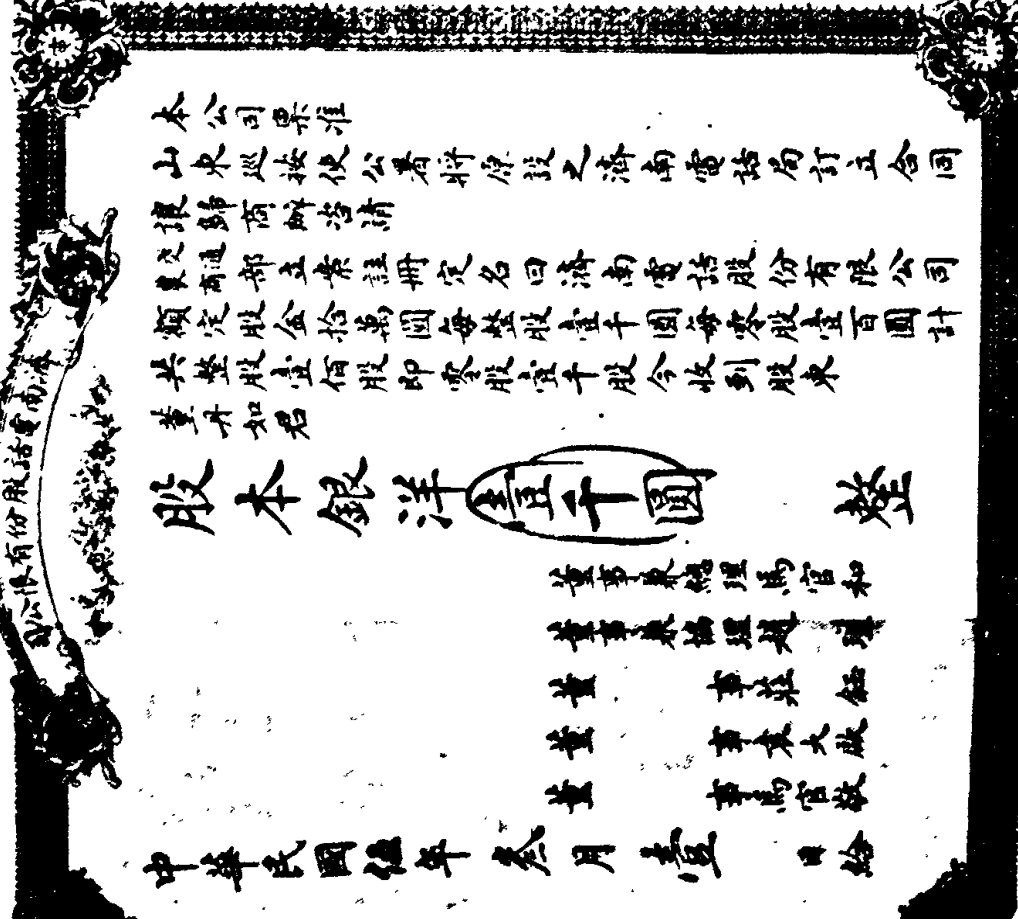 濟南電話股份有限公司
本公司稟准
山東巡按使公署將原設之濟南電話局訂立合同
讓歸商辦咨請
農商交通部立案註冊定名曰濟南電話股份有限公司
額定股金拾萬圓每整股壹千圓每零股壹百圓計
共整股壹佰股即零股壹千股今收到股東
董丹如君
股本銀洋壹千圓 整
董事兼總理馬官和
董事兼協理趙
董事莊鈺
董事袁大啟
董事馬官敬
中華民國伍年叁月壹日給